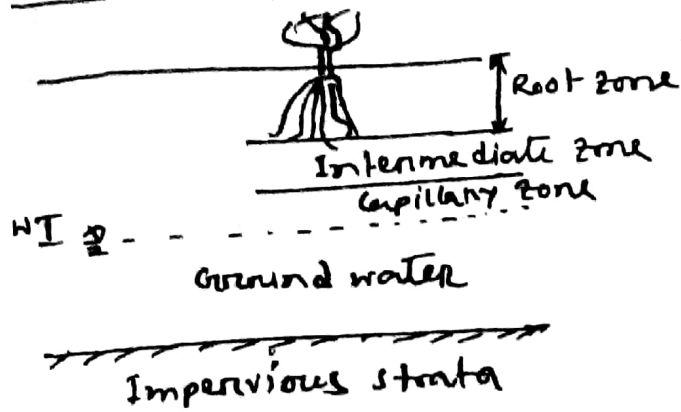 Root zone
Intermediate zone
Capillary zone
WT
Ground water
Impervious strata